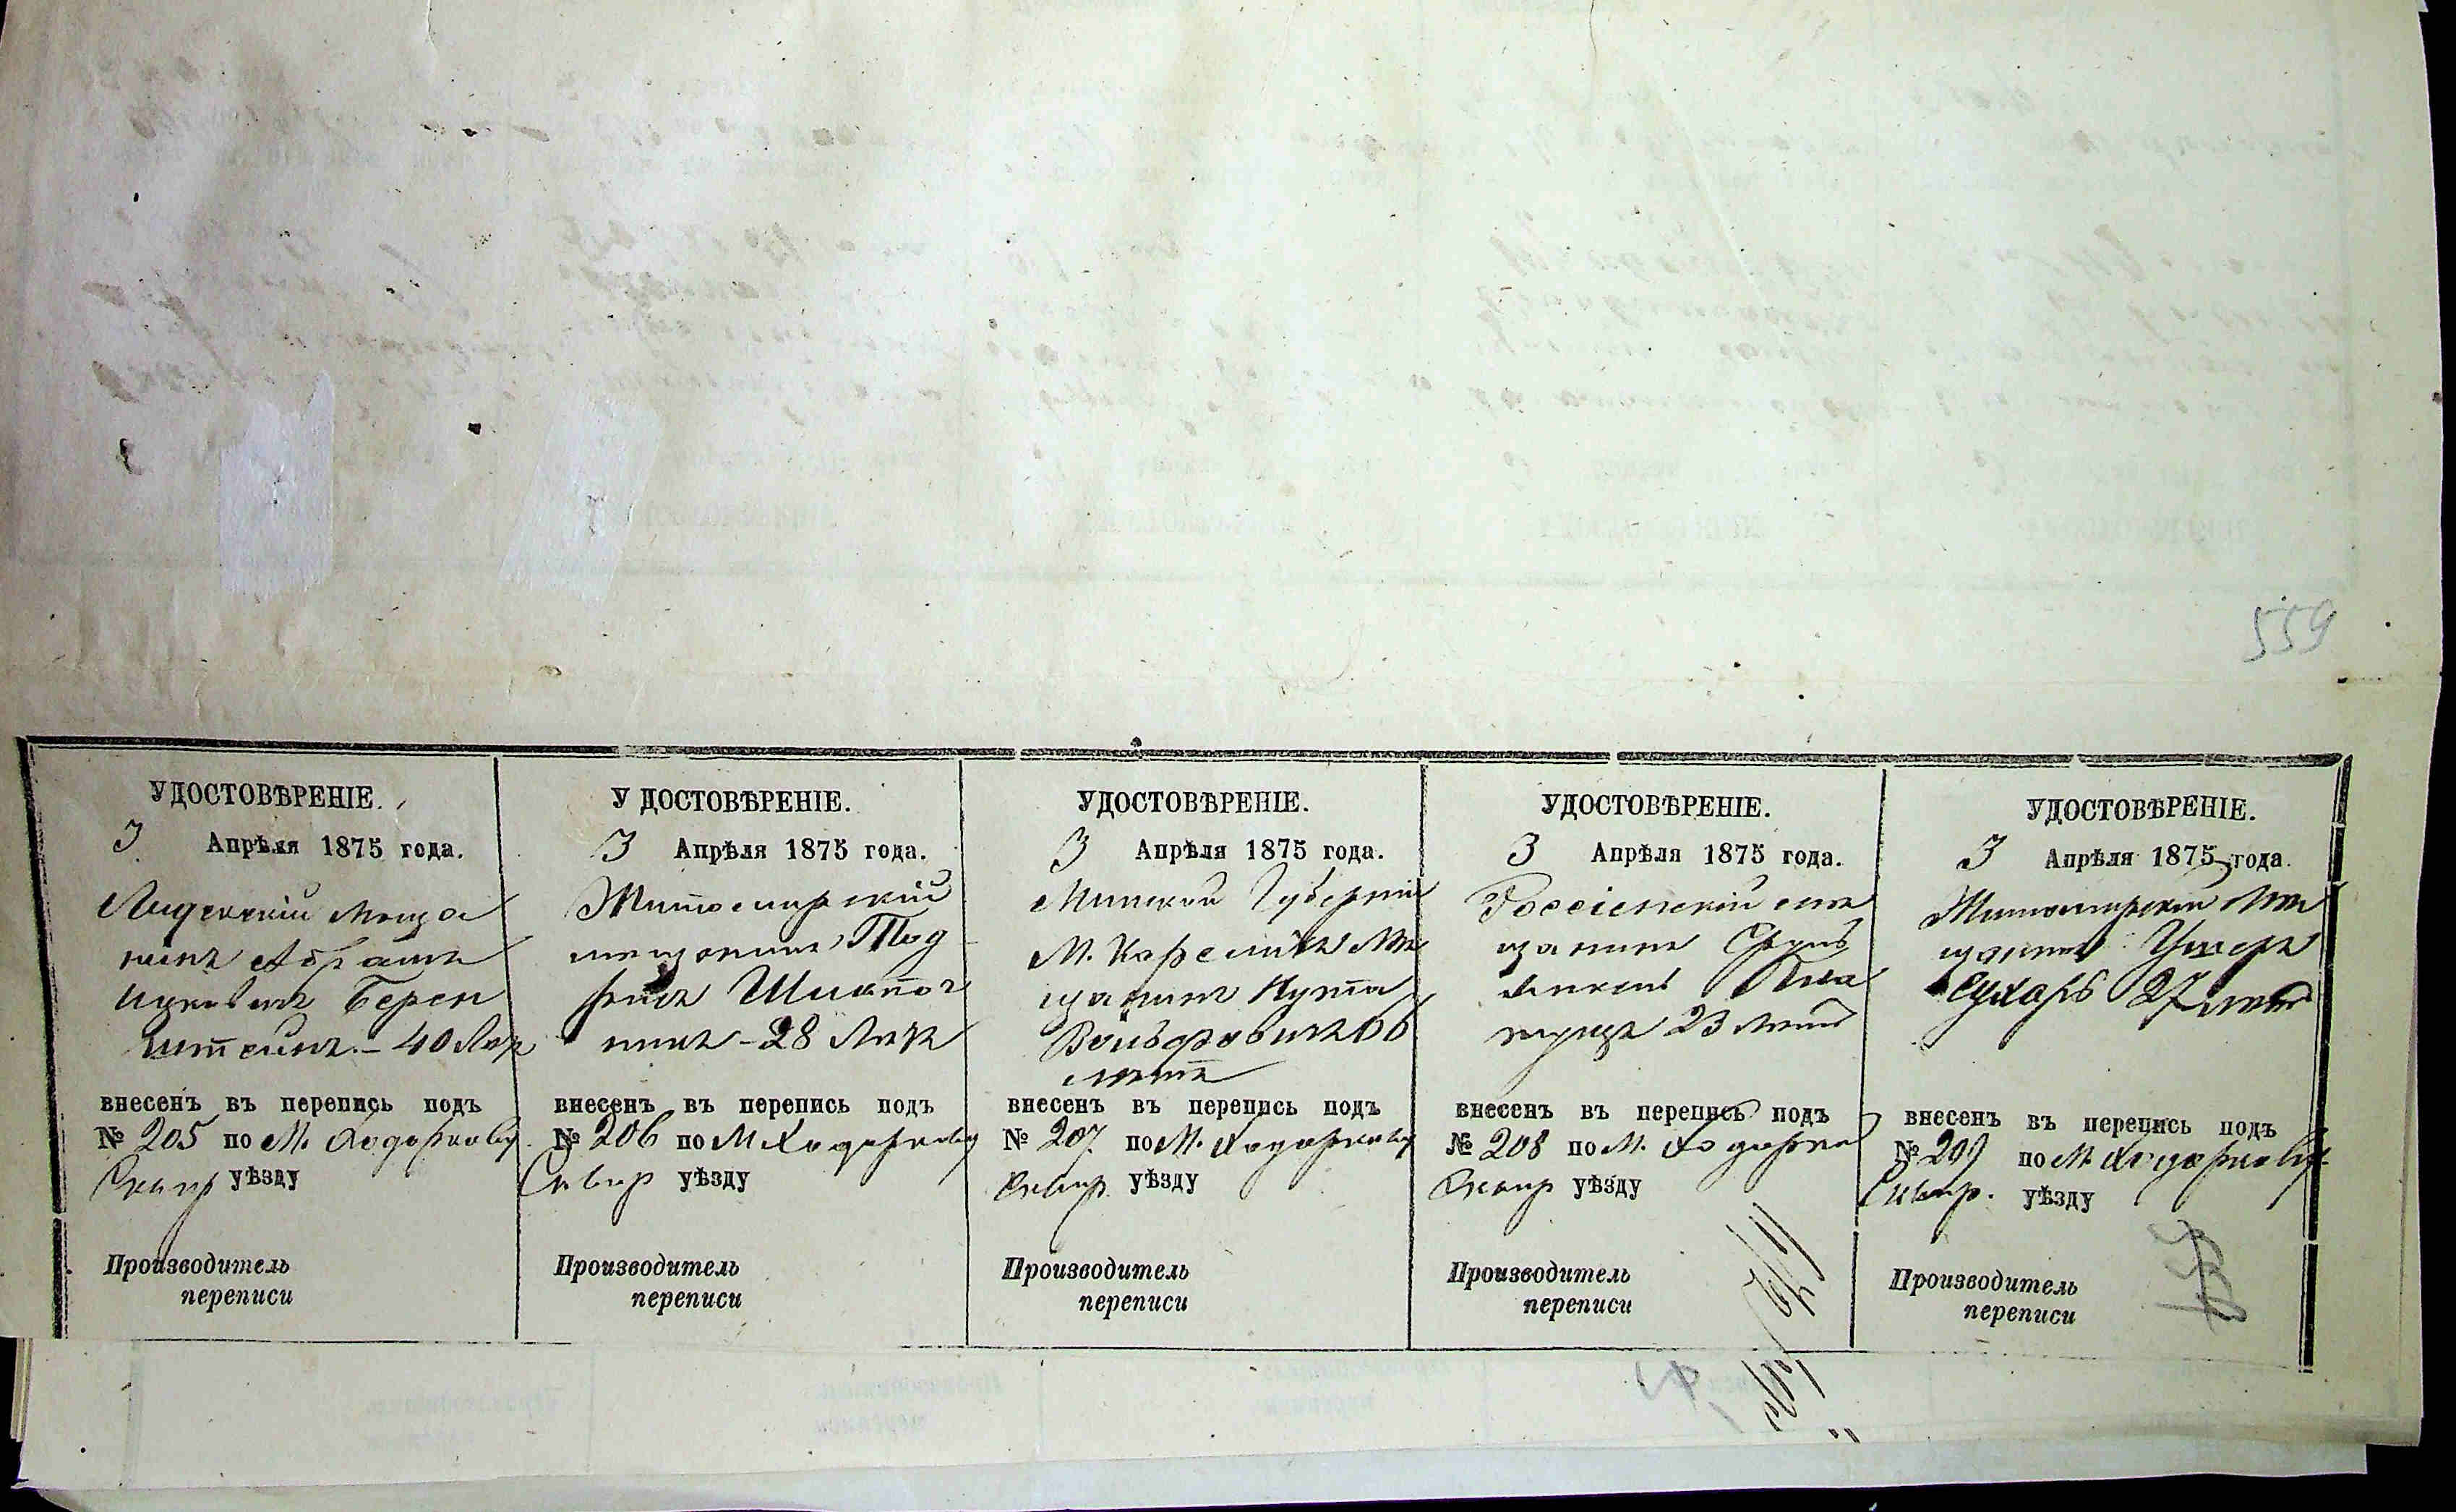 559
УДОСТОВѢРЕНІЕ.
3 Апрѣля 1875 года.
Лидскій Мѣща
нинъ Абрамъ
Ицковичъ Берен
штейнъ - 40 лѣт
внесенъ въ перепись подъ
№ 205 по М. Ходоркову
Сквир уѣзду
Производитель
переписи
УДОСТОВѢРЕНІЕ.
3 Апрѣля 1875 года.
Житомирскій
мещанинъ
28 лѣтъ
внесенъ въ перепись подъ
№ 206 по М Ходоркову
Сквир уѣзду
Производитель
переписи
УДОСТОВѢРЕНІЕ.
3 Апрѣля 1875 года.
Минской Губерніи
М. Карелича Мѣ
щанинъ Нута
Вольфовичъ 66
лѣтъ
внесенъ въ перепись подъ
№ 207 по М. Ходоркову
Сквир. уѣзду
Производитель
переписи
УДОСТОВѢРЕНІЕ.
3 Апрѣля 1875 года.
Россіенскій мѣ
щанинъ
23 лѣт
внесенъ въ перепись подъ
№ 208 по М. Ходорков
Сквир уѣзду
Производитель
переписи
УДОСТОВѢРЕНІЕ.
3 Апрѣля 1875 года.
Житомирскій Мѣ
щанинъ Ушеръ
Сухарь 27 лѣтъ
внесенъ въ перепись подъ
№ 209 по М. Ходоркову
Сквир. уѣзду
Производитель
переписи